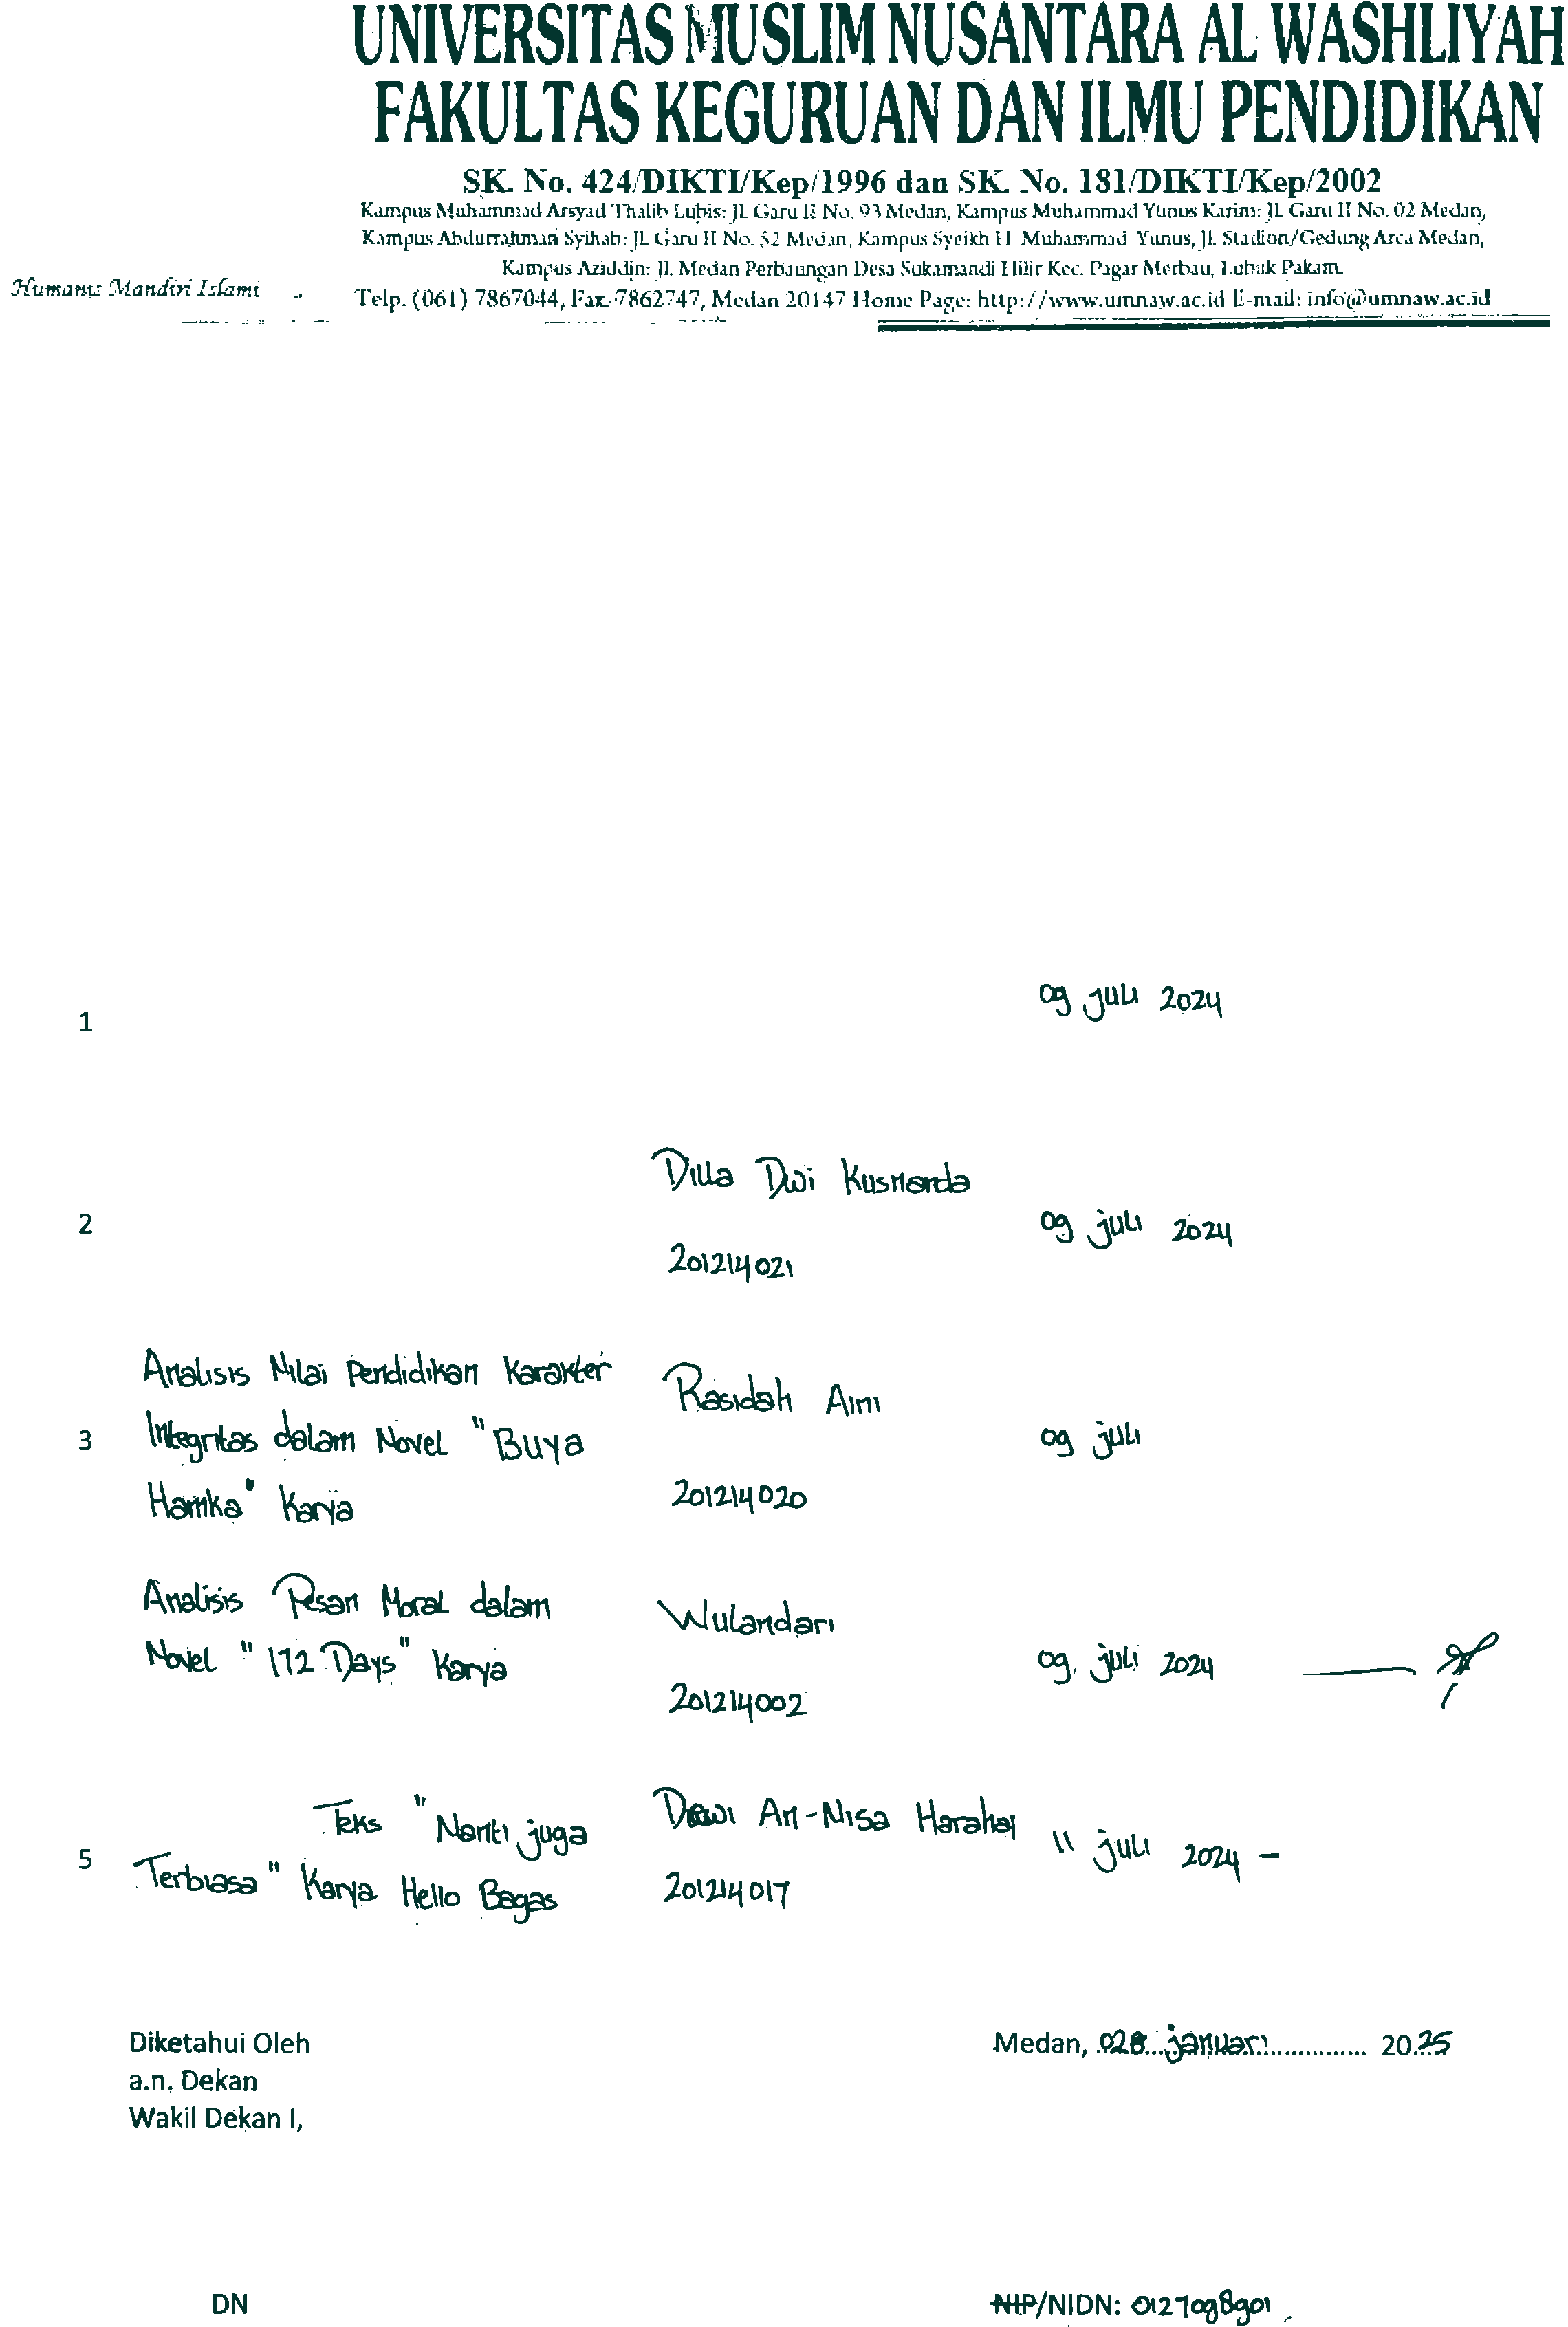 UNIVERSITAS MUSLIM NUSANTARA AL WASHLIYAH
FAKULTAS KEGURUAN DAN ILMU PENDIDIKAN
SK. No. 424/DIKTI/Kep/1996 dan SK. No. 181/DIKTI/Kep/2002
Kampus Muhammad Arsyad Thalib Lubis: Jl. Garu II No. 93 Medan, Kampus Muhammad Yunus Karim: Jl. Garu II No. 02 Medan,
Kampus Abdurrahman Syihab: Jl. Garu II No. 52 Medan, Kampus Syeikh H Muhammad Yunus, Jl. Stadion/Gedung Arca Medan,
Kampus Aziddin: Jl. Medan Perbaungan Desa Sukamandi Hilir Kec. Pagar Merbau, Lubuk Pakam.
Humanis Mandiri Islami
Telp. (061) 7867044, Fax. 7862747, Medan 20147 Home Page: http://www.umnaw.ac.id E-mail: info@umnaw.ac.id
1 09 juli 2024
Dilla Dwi Kusnanda
2 09 juli 2024
201214021
Analisis Nilai Pendidikan Karakter
Rasidah Aini
3 Integritas dalam Novel "Buya 09 juli
Hamka" Karya 201214020
Analisis Pesan Moral dalam
Wulandari
Novel "172 Days" Karya 09 juli 2024
201214002
Teks "Nanti juga Dewi An-Nisa Harahap
5 11 juli 2024 -
Terbiasa" Karya Hello Bagas 201214017
Diketahui Oleh Medan, januari 2025
a.n. Dekan
Wakil Dekan I,
DN NIP/NIDN: 0127098901